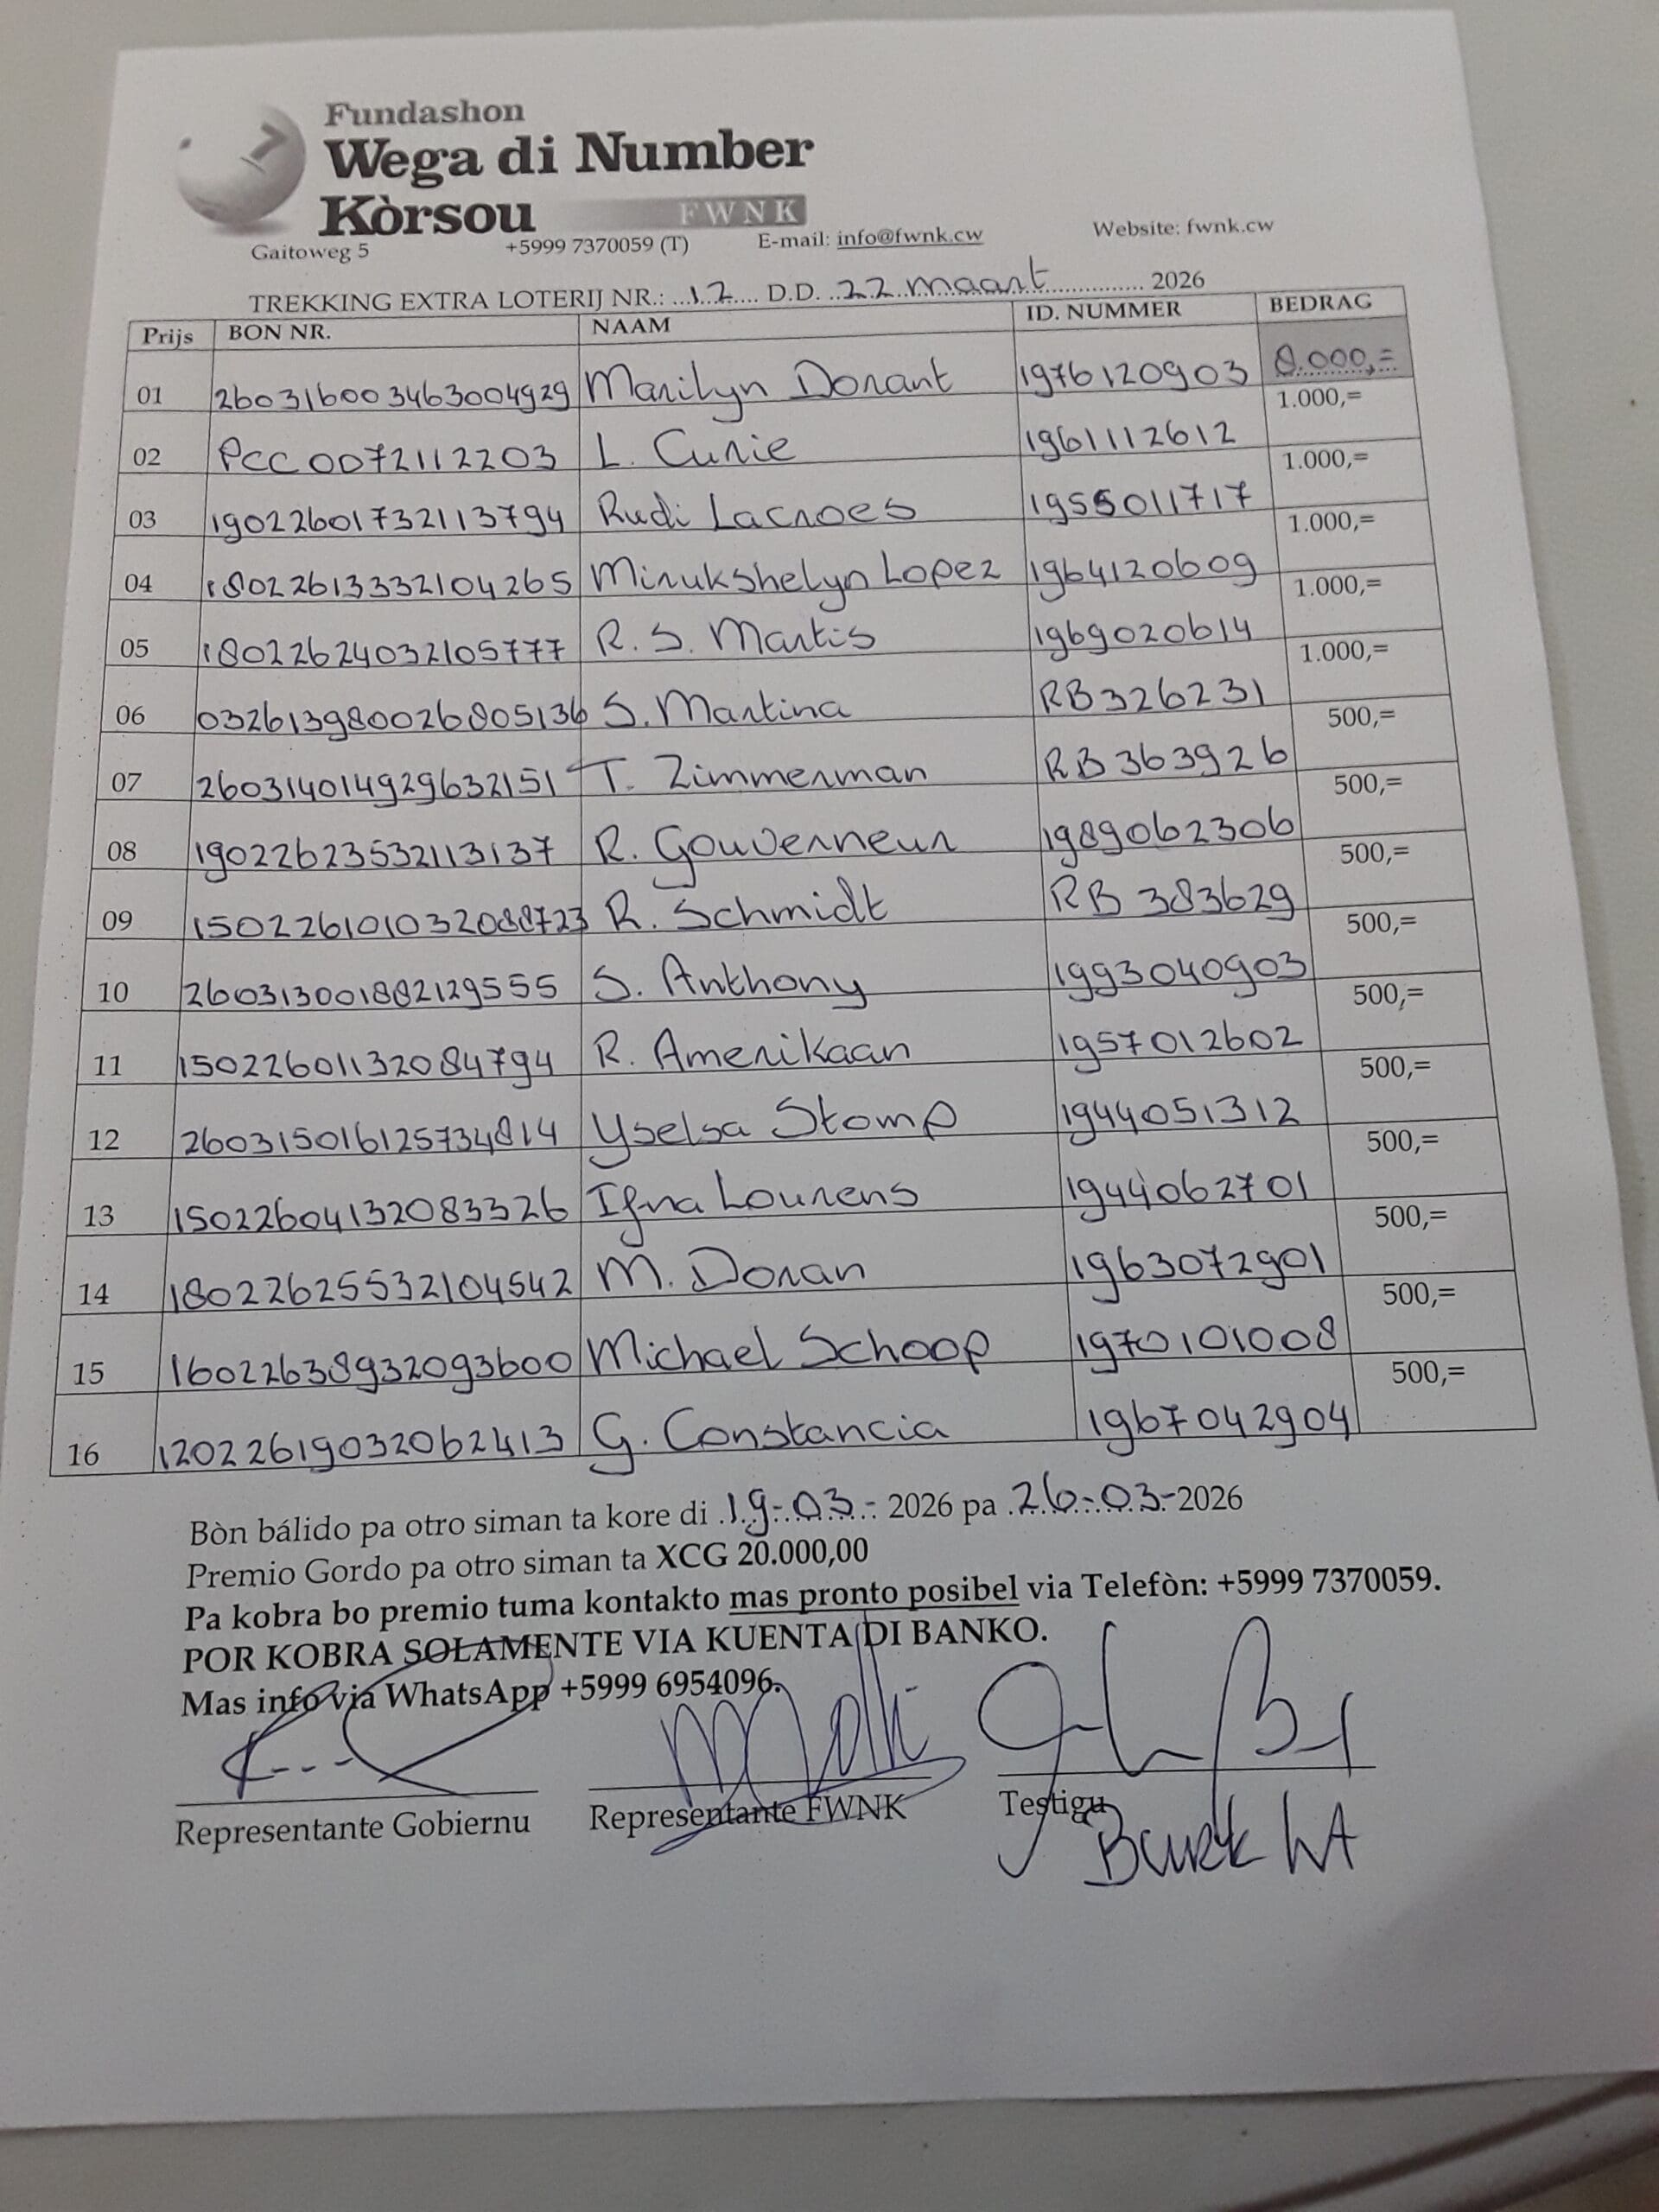 Fundashon
Wega di Number
Kòrsou FWNK
Gaitoweg 5 +5999 7370059 (T) E-mail: info@fwnk.cw Website: fwnk.cw
TREKKING EXTRA LOTERIJ NR.: 12 D.D. 22 maart 2026
Prijs BON NR. NAAM ID. NUMMER BEDRAG
01 260316003463004929 Marilyn Dorant 1976120903 8.000,=
02 PCC0072112203 L. Curie 1961112612 1.000,=
03 19022601732113794 Rudi Lacroes 1955011717 1.000,=
04 18022613332104265 Mirukshelyn Lopez 1964120609 1.000,=
05 18022624032105777 R. S. Martis 1969020614 1.000,=
06 032613980026805136 S. Martina RB326231 1.000,=
07 260314014929632151 T. Zimmerman RB363926 500,=
08 19022623532113137 R. Gouverneur 1989062306 500,=
09 150226101032088723 R. Schmidt RB383629 500,=
10 260313001882129555 S. Anthony 1993040903 500,=
11 15022601132084794 R. Amerikaan 1957012602 500,=
12 260315016125734814 Yselsa Stomp 1944051312 500,=
13 15022604132083326 Ifna Lourens 1944062701 500,=
14 18022625532104542 M. Doran 1963072901 500,=
15 16022638932093600 Michael Schoop 1970101008 500,=
16 12022619032062413 G. Constancia 1967042904 500,=
Bòn bálido pa otro siman ta kore di 19-03- 2026 pa 26-03-2026
Premio Gordo pa otro siman ta XCG 20.000,00
Pa kobra bo premio tuma kontakto mas pronto posibel via Telefòn: +5999 7370059.
POR KOBRA SOLAMENTE VIA KUENTA DI BANKO.
Mas info via WhatsApp +5999 6954096.
Representante Gobiernu Representante FWNK Testigu